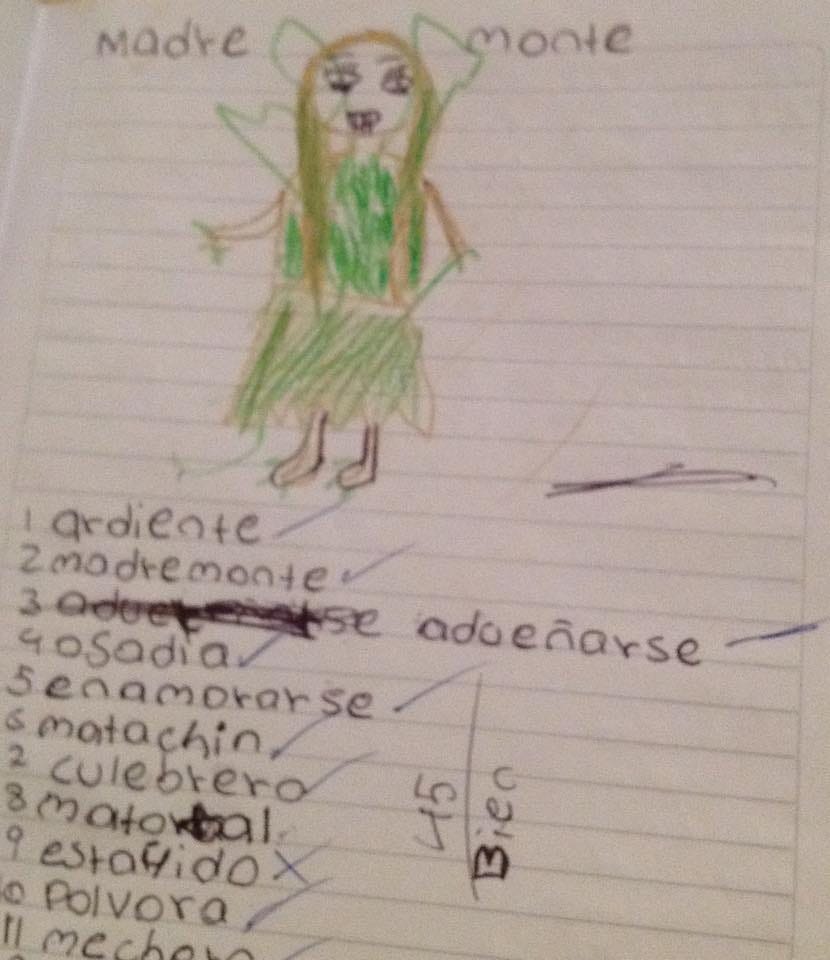 Madre monte
1 ardiente
2 madremonte
3 adueñarse
4 osadía
5 enamorarse
6 matachin
7 culebrero
8 matorral
9 estayido
10 Polvora
11 mechero
45
Bien